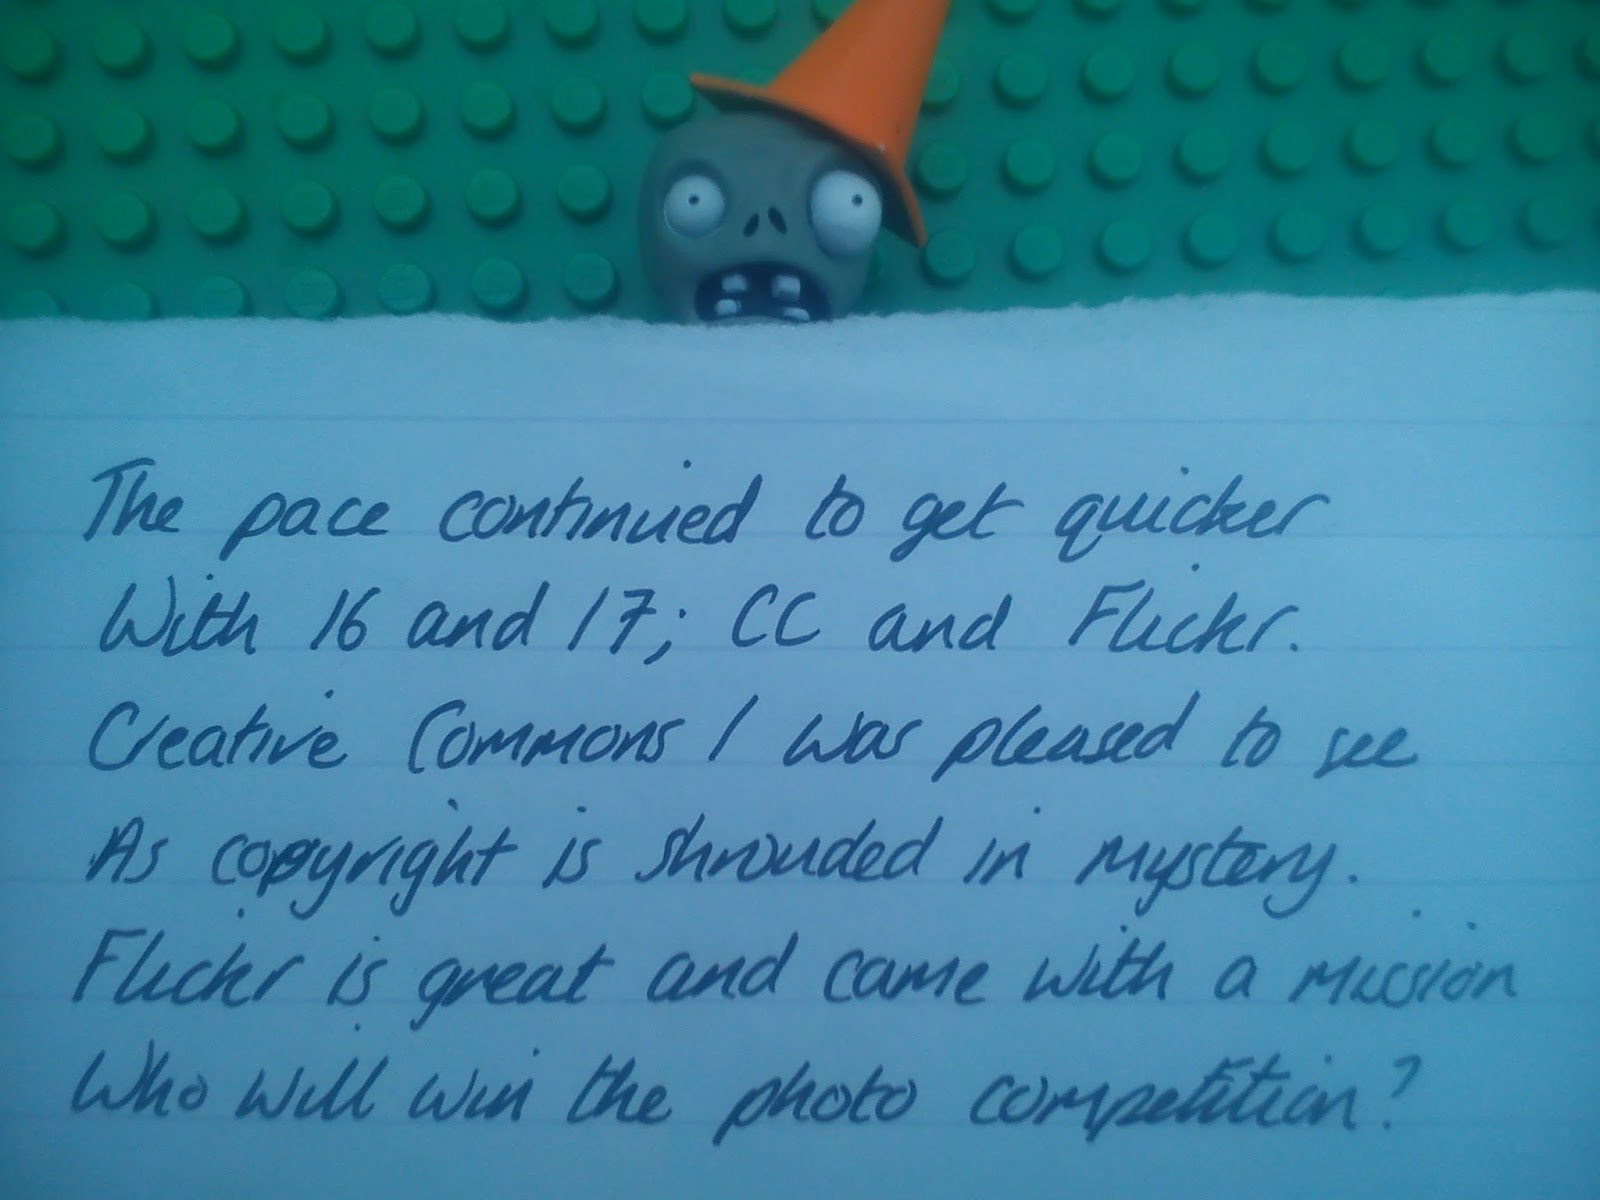 The pace continued to get quicker
With 16 and 17; CC and Flickr.
Creative Commons I was pleased to see
As copyright is shrouded in mystery.
Flickr is great and came with a mission
Who will win the photo competition?